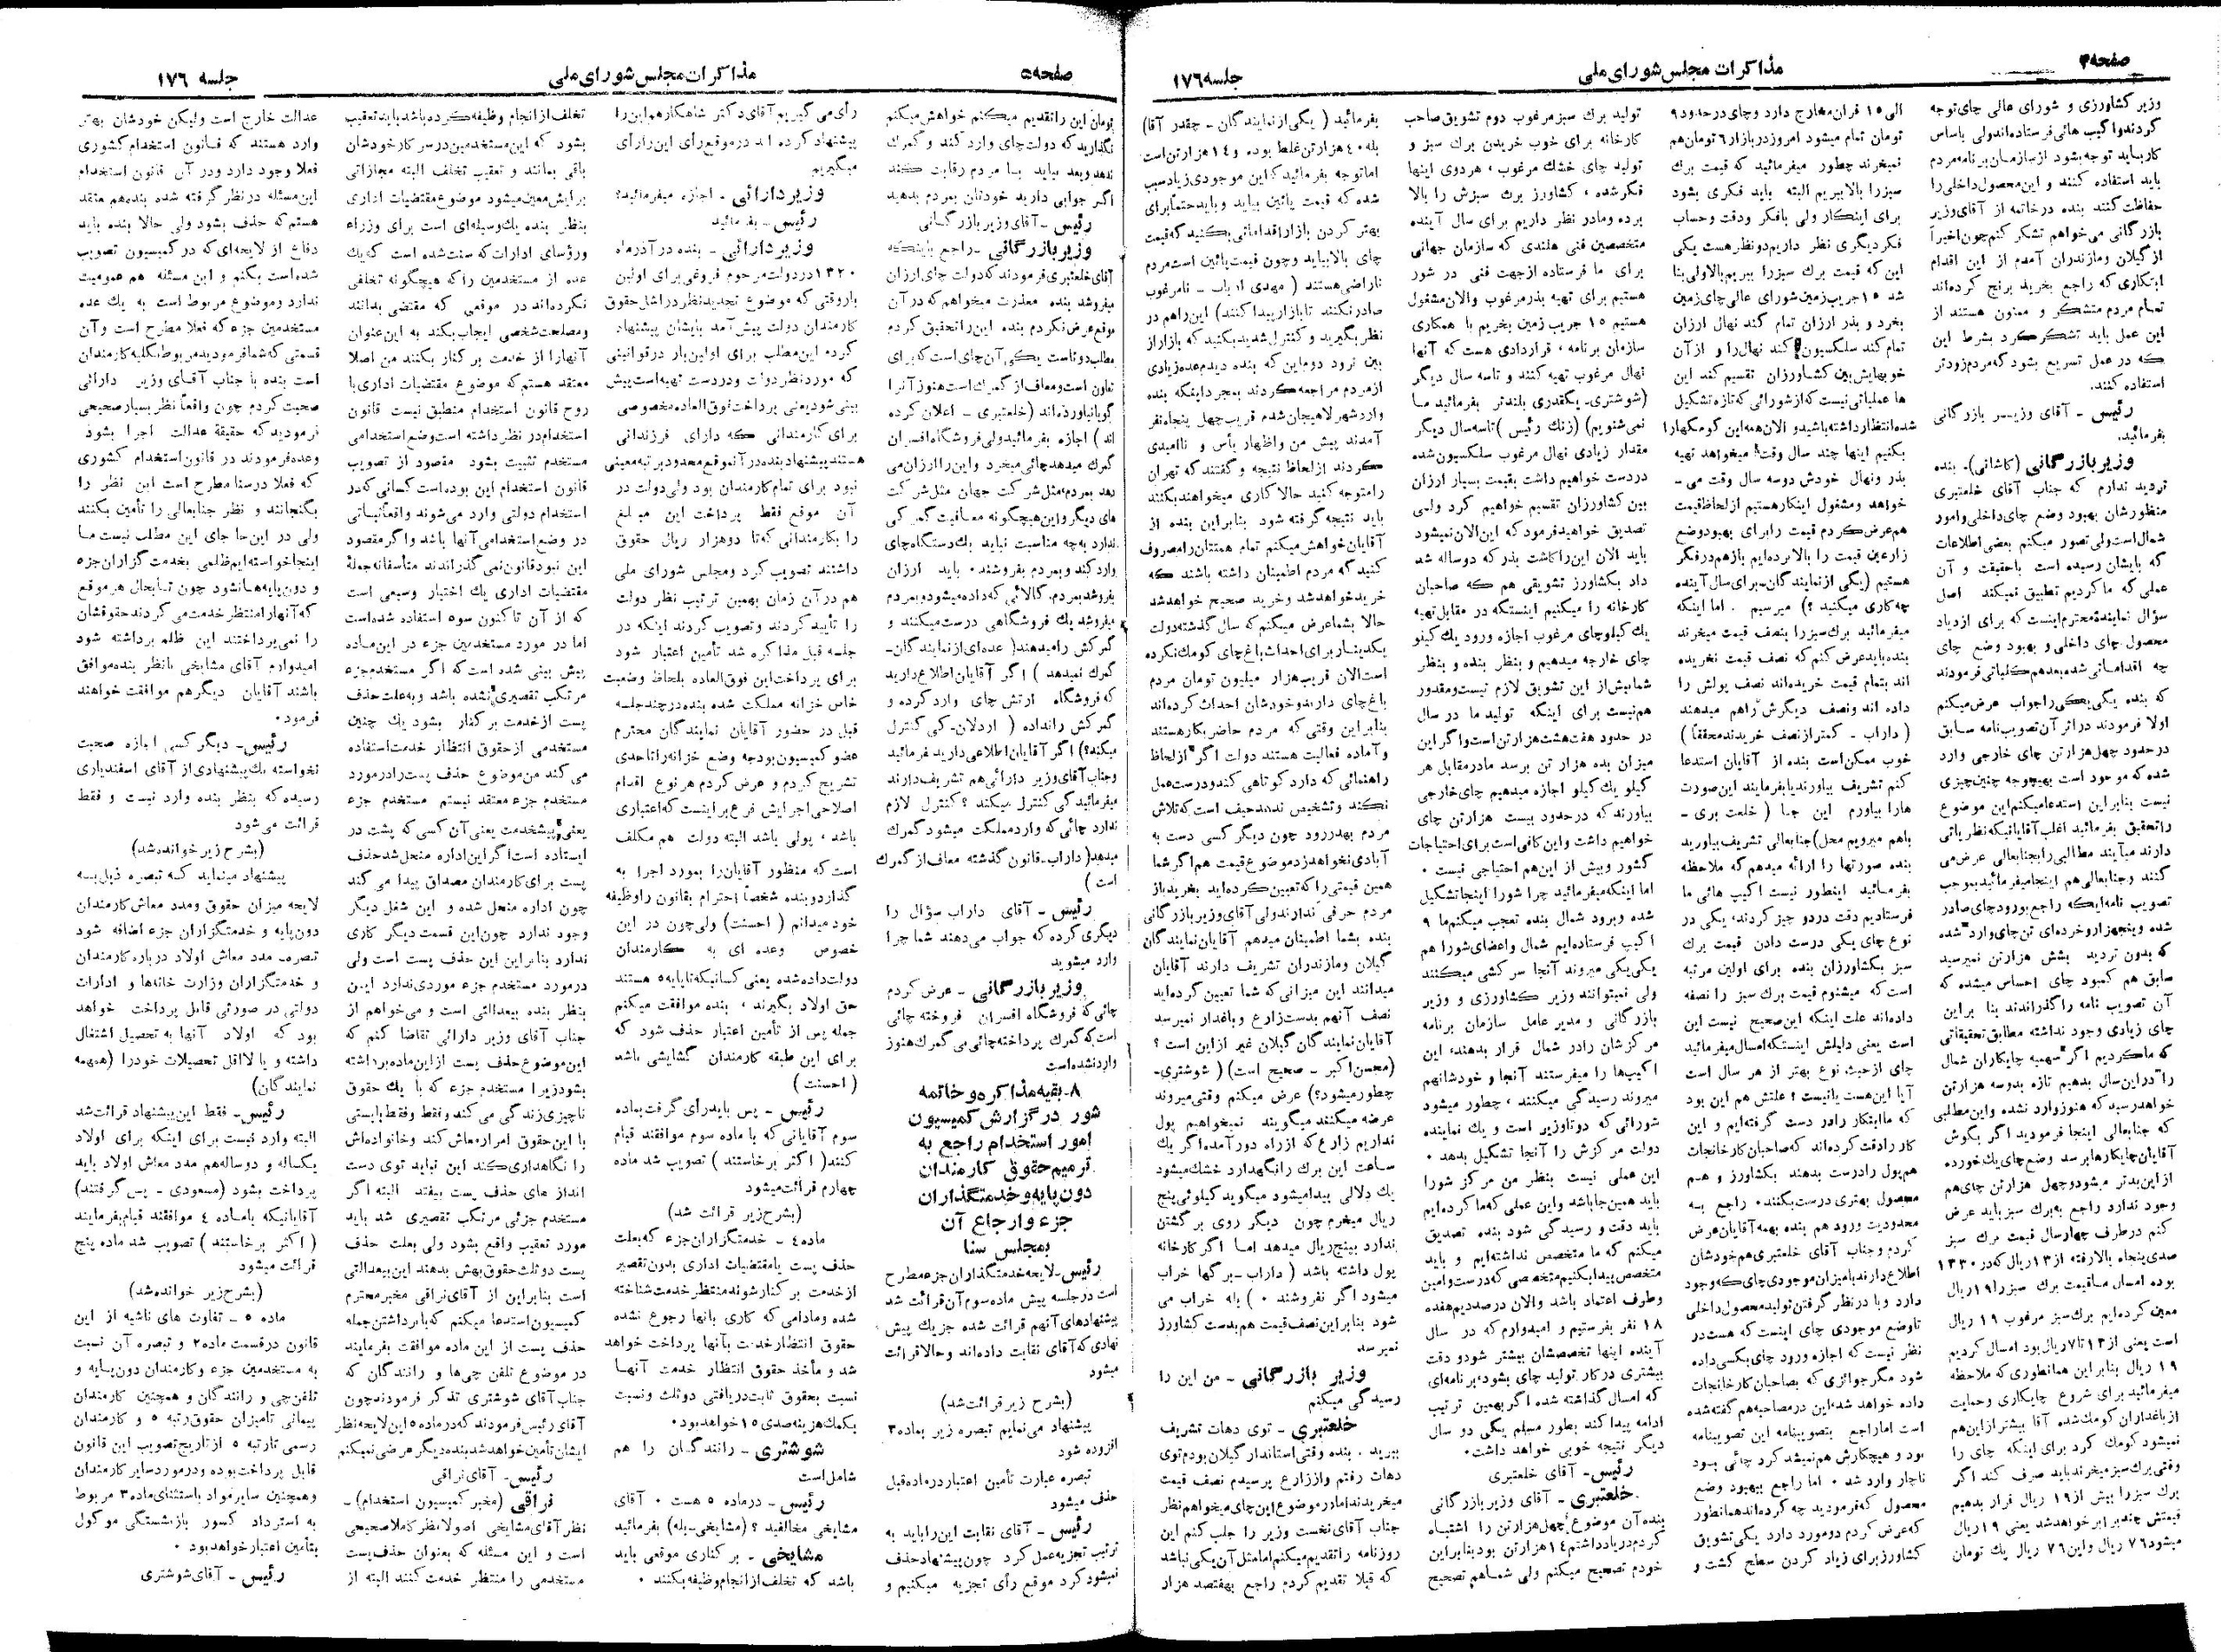 صفحه ۴
مذاکرات مجلس شورای ملی
جلسه ۱۷۶
وزیر کشاورزی و شورای عالی چای توجه
کردند و اکیپ هائی فرستاده اند ولی باساس
کار باید توجه بشود از سازمان برنامه مردم
باید استفاده کنند و این محصول داخلی را
حفاظت کنند بنده در خاتمه از آقای وزیر
بازرگانی می خواهم تشکر کنم چون اخیراً
از گیلان و مازندران آمدم از این اقدام
ابتکاری که راجع بخرید برنج کرده اند
تمام مردم متشکر و ممنون هستند از
این عمل باید تشکر کرد بشرط این
که در عمل تسریع بشود که مردم زودتر
استفاده کنند.
رئیس - آقای وزیر بازرگانی
بفرمائید.
وزیر بازرگانی (کاشانی)- بنده
تردید ندارم که جناب آقای خلعتبری
منظورشان بهبود وضع چای داخلی و امور
شمال است ولی تصور میکنم بعضی اطلاعات
که بایشان رسیده است باحقیقت و آن
عملی که ما کردیم تطبیق نمیکند اصل
سؤال نماینده محترم اینست که برای ازدیاد
محصول چای داخلی و بهبود وضع چای
چه اقداماتی شده بعدهم کلیاتی فرمودند
که بنده یکی یکی را جواب عرض میکنم
اولا فرمودند در اثر آن تصویب نامه سابق
در حدود چهل هزار تن چای خارجی وارد
شده که موجود است بهیچوجه چنین چیزی
نیست بنابراین استدعا میکنم این موضوع
را تحقیق بفرمائید اغلب آقایانیکه نظریاتی
دارند میآیند مطالبی را بجنابعالی عرض می
کنند و جنابعالی هم اینجا میفرمائید بموجب
تصویب نامه ایکه راجع بورود چای صادر
شده و پنجهزار و خرده ای تن چای وارد شده
که بدون تردید بشش هزار تن نمیرسد
سابق هم کمبود چای احساس میشده که
آن تصویب نامه را گذراندند بنا براین
چای زیادی وجود نداشته مطابق تحقیقاتی
که ما کردیم اگر سهمیه چایکاران شمال
را در این سال بدهیم تازه بدوسه هزار تن
خواهد رسید که هنوز وارد نشده و این مطلبی
که جنابعالی اینجا فرمودید اگر بگوش
آقایان چایکارها برسد وضع چای یک خورده
از این بدتر میشود و چهل هزار تن چای هم
وجود ندارد راجع به برک سبز باید عرض
کنم در ظرف چهار سال قیمت برک سبز
صدی پنجاه بالا رفته از ۱۳ ریال که در ۱۳۳۰
بوده امسال ما قیمت برك سبز را ۱۹ ریال
معین کرده ایم برك سبز مرغوب ۱۹ ریال
است یعنی از ۱۳ تا ۱۷ ریال بود امسال کردیم
۱۹ ریال بنابراین همانطوری که ملاحظه
میفرمائید برای شروع چایکاری و حمایت
از باغداران کومك شده آقا بیشتر از این هم
نمیشود کومك کرد برای اینکه چای را
وقتی برك سبز میخرند باید صرف کند اگر
برك سبز را بیش از ۱۹ ریال قرار بدهیم
قیمتش چند برابر خواهد شد یعنی ۱۹ ریال
میشود ۷۶ ریال و این ۷۶ ریال یك تومان
الی ۱۵ قران مخارج دارد و چای در حدود ۹
تومان تمام میشود امروز در بازار ۶ تومان هم
نمیخرند چطور میفرمائید که قیمت برك
سبز را بالا ببریم البته باید فکری بشود
برای اینکار ولی بافکر و دقت و حساب
فکر دیگری نظر داریم دو نظر هست یکی
این که قیمت برك سبز را ببریم بالا ولی بنا
شد ۱۵ جریب زمین شورای عالی چای زمین
بخرد و بذر ارزان تمام کند نهال ارزان
تمام کند سلکسیون کند نهال را و از آن
خوبهایش بین کشاورزان تقسیم کند این
ها عملیاتی نیست که از شورائی که تازه تشکیل
شده انتظار داشته باشید و الان همه این کومکها را
بکنیم اینها چند سال وقت میخواهد تهیه
بذر و نهال خودش دوسه سال وقت می-
خواهد و مشغول اینکار هستیم از لحاظ قیمت
هم عرض کردم قیمت را برای بهبود وضع
زارعین قیمت را بالا برده ایم بازهم در فکر
هستیم (یکی از نمایندگان-برای سال آینده
چه کاری میکنید ؟) میرسیم . اما اینکه
میفرمائید برك سبز را بنصف قیمت میخرند
بنده باید عرض کنم که نصف قیمت نخریده
اند بتمام قیمت خریده اند نصف پولش را
داده اند و نصف دیگرش راهم میدهند
(داراب - کمتر از نصف خریدند محققا)
خوب ممکن است بنده از آقایان استدعا
کنم تشریف بیاورند یا بفرمایند این صورت
هارا بیاورم این جا (خلعت بری -
باهم میرویم محل) جنابعالی تشریف بیاورید
بنده صورتها را ارائه میدهم که ملاحظه
بفرمائید اینطور نیست اکیپ هائی ما
فرستادیم دقت در دو چیز کردند، یکی در
نوع چای یکی درست دادن قیمت برك
سبز بکشاورزان بنده برای اولین مرتبه
است که میشنوم قیمت برك سبز را نصفه
داده اند علت اینکه این صحیح نیست این
است یعنی دلیلش اینستکه امسال میفرمائید
چای از حیث نوع بهتر از هر سال است
آیا این هست یا نیست؟ علتش هم این بود
که ما ابتکار را در دست گرفته ایم و این
کار را دقت کرده اند که صاحبان کارخانجات
هم پول را درست بدهند بکشاورز و هم
محصول بهتری درست بکنند. راجع به
محدودیت ورود هم بنده بهمه آقایان عرض
کردم و جناب آقای خلعتبری هم خودشان
اطلاع دارند با میزان موجودی چای که وجود
دارد و با در نظر گرفتن تولید محصول داخلی
تا وضع موجودی چای اینست که هست در
نظر نیست که اجازه ورود چای بکسی داده
شود مگر جوائزی که بصاحبان کارخانجات
داده خواهد شد، این در مصاحبه هم گفته شده
است اما راجع بتصویبنامه این تصویبنامه
بود و هیچکارش هم نمیشد کرد چائی بود
ناچار وارد شد . اما راجع ببهبود وضع
محصول که فرمودید چه کرده اند همانطور
که عرض کردم دو مورد دارد یکی تشویق
کشاورز برای زیاد کردن سطح کشت و
تولید برك سبز مرغوب دوم تشویق صاحب
کارخانه برای خوب خریدن برك سبز و
تولید چای خشك مرغوب ، هر دوی اینها
فکر شده ، کشاورز برك سبزش را بالا
برده و مادر نظر داریم برای سال آینده
متخصصین فنی هلندی که سازمان جهانی
برای ما فرستاده از جهت فنی در شور
هستیم برای تهیه بذر مرغوب و الان مشغول
هستیم ۱۵ جریب زمین بخریم با همکاری
سازمان برنامه ، قراردادی هست که آنها
نهال مرغوب تهیه کنند و تا سه سال دیگر
(شوشتری- یکقدری بلندتر بفرمائید ما
نمی شنویم) (زنك رئیس) تا سه سال دیگر
مقدار زیادی نهال مرغوب سلکسیون شده
در دست خواهیم داشت بقیمت بسیار ارزان
بین کشاورزان تقسیم خواهیم کرد ولی
تصدیق خواهید فرمود که این الان نمیشود
باید الان این را کاشت بذر که دوساله شد
داد بکشاورز تشویقی هم که صاحبان
کارخانه را میکنیم اینستکه در مقابل تهیه
یك کیلو چای مرغوب اجازه ورود یك کیلو
چای خارجه میدهیم و بنظر بنده و بنظر
شما بیش از این تشویق لازم نیست و مقدور
هم نیست برای اینکه تولید ما در سال
در حدود هفت هشت هزار تن است و اگر این
میزان بده هزار تن برسد ما در مقابل هر
کیلو یك کیلو اجازه میدهیم چای خارجی
بیاورند که در حدود بیست هزار تن چای
خواهیم داشت و این کافی است برای احتیاجات
کشور و بیش از این هم احتیاجی نیست .
اما اینکه میفرمائید چرا شورا اینجا تشکیل
شده و برود شمال بنده تعجب میکنم ما ۹
اکیپ فرستاده ایم شمال و اعضای شورا هم
یکی یکی میروند آنجا سرکشی میکنند
ولی نمیتوانند وزیر کشاورزی و وزیر
بازرگانی و مدیر عامل سازمان برنامه
مرکزشان را در شمال قرار بدهند، این
اکیپ ها را میفرستند آنجا و خودشانهم
میروند رسیدگی میکنند ، چطور میشود
شورائی که دو تا وزیر است و یك نماینده
دولت مرکزش را آنجا تشکیل بدهد .
این عملی نیست بنظر من مرکز شورا
باید همین جا باشد و این عملی که ما کرده ایم
باید دقت و رسیدگی شود بنده تصدیق
میکنم که ما متخصص نداشته ایم و باید
متخصص پیدا بکنیم متخصصی که درست و امین
و طرف اعتماد باشد و الان در صددیم هفده
۱۸ نفر بفرستیم و امیدوارم که در سال
آینده اینها تخصصشان بیشتر شود و دقت
بیشتری در کار تولید چای بشود، برنامه ای
که امسال گذاشته شده اگر بهمین ترتیب
ادامه پیدا کند بطور مسلم یکی دو سال
دیگر نتیجه خوبی خواهد داشت.
رئیس - آقای خلعتبری
خلعتبری - آقای وزیر بازرگانی
بنده آن موضوع چهل هزار تن را اشتباه
کردم در یادداشتم ۱۴ هزار تن بود بنابراین
خودم تصحیح میکنم ولی شما هم تصحیح
بفرمائید (یکی از نمایندگان - چقدر آقا)
بله ۴۰ هزار تن غلط بوده و ۱۴ هزار تن است
اما توجه بفرمائید که این موجودی زیاد سبب
شده که قیمت پائین بیاید و باید حتماً برای
بهتر کردن بازار اقداماتی بکنید که قیمت
چای بالا بیاید و چون قیمت پائین است مردم
ناراضی هستند (مهدی ارباب - نامرغوب
صادر نکنند تا بازار پیدا کنند) این راهم در
نظر بگیرید و کنترل شدید بکنید که بازار از
بین نرود دوم این که بنده دیدم عده زیادی
از مردم مراجعه کردند بمجرد اینکه بنده
وارد شهر لاهیجان شدم قریب چهل پنجاه نفر
آمدند پیش من و اظهار یأس و ناامیدی
کردند از لحاظ نتیجه و گفتند که تهران
را متوجه کنید حالا کاری میخواهند بکنند
باید نتیجه گرفته شود بنابراین بنده از
آقایان خواهش میکنم تمام همتتان را مصروف
کنید که مردم اطمینان داشته باشند که
خرید خواهد شد و خرید صحیح خواهد شد
حالا بشما عرض میکنم که سال گذشته دولت
یکدینار برای احداث باغ چای کومك نکرده
است الان قریب هزار میلیون تومان مردم
باغ چای دارند و خودشان احداث کرده اند
بنابراین وقتی که مردم حاضر بکار هستند
و آماده فعالیت هستند دولت اگر از لحاظ
راهنمائی که دارد کوتاهی کند و درست عمل
نکند و تشخیص ندهد حیف است که تلاش
مردم بهدر رود چون دیگر کسی دست به
آبادی نخواهد زد موضوع قیمت هم اگر شما
همین قیمتی را که تعیین کرده اید بخرید از
مردم حرفی ندارند ولی آقای وزیر بازرگانی
بنده بشما اطمینان میدهم آقایان نمایندگان
گیلان و مازندران تشریف دارند آقایان
میدانند این میزانی که شما تعیین کرده اید
نصف آنهم بدست زارع و باغدار نمیرسد
آقایان نمایندگان گیلان غیر از این است ؟
(محسن اکبر - صحیح است) (شوشتری-
چطور میشود؟) عرض میکنم وقتی میروند
عرضه میکنند میگویند نمیخواهیم پول
نداریم زارع که از راه دور آمده اگر یك
ساعت این برك را نگهدارد خشك میشود
یك دلالی پیدا میشود میگوید کیلوئی پنج
ریال میخرم چون دیگر روی برگشتن
ندارد بپنج ریال میدهد اما اگر کارخانه
پول داشته باشد (داراب - برگها خراب
میشود اگر نفروشند.) بله خراب می
شود بنابراین نصف قیمت هم بدست کشاورز
نمیرسد
وزیر بازرگانی - من این را
رسیدگی میکنم
خلعتبری - توی دهات تشریف
ببرید . بنده وقتی استاندار گیلان بودم توی
دهات رفتم و از زارع پرسیدم نصف قیمت
میخریدند اما در موضوع این چای میخواهم نظر
جناب آقای نخست وزیر را جلب کنم این
روزنامه را تقدیم میکنم اما مثل آن یکی نباشد
که قبلا تقدیم کردم راجع بهفتصد هزار
صفحه ۵
مذاکرات مجلس شورای ملی
جلسه ۱۷۶
تومان این را تقدیم میکنم خواهش میکنم
نگذارید که دولت چای وارد کند و گمرك
ندهد و بعد بیاید با مردم رقابت کند
اگر جوابی دارید خودتان بمردم بدهید
رئیس - آقای وزیر بازرگانی
وزیر بازرگانی - راجع باینکه
آقای خلعتبری فرمودند که دولت چای ارزان
میفروشد بنده معذرت میخواهم که در آن
موقع عرض نکردم بنده این را تحقیق کردم
مطلب دو تا است یکی آن چای است که برای
تعاون است و معاف از گمرك است هنوز آنرا
گویا نیاورده اند (خلعتبری - اعلان کرده
اند) اجازه بفرمائید ولی فروشگاه افسران
گمرك میدهد چائی میخرد و این را ارزان می
دهد بمردم، مثل شرکت جهان مثل شرکت
های دیگر و این هیچگونه معافیت گمرکی
ندارد بچه مناسبت نباید یك دستگاه چای
وارد کند و بمردم بفروشد، باید ارزان
بفروشد بمردم، کالائی که داده میشود و بمردم
میفروشد یك فروشگاهی درست میکنند و
گمرکش را میدهند (عده ای از نمایندگان-
گمرك نمیدهد) اگر آقایان اطلاع دارید
که فروشگاه ارتش چای وارد کرده و
گمرکش را نداده (اردلان-کی کنترل
میکند؟) اگر آقایان اطلاعی دارید فرمائید
و جناب آقای وزیر دارائی هم تشریف دارند
میفرمائید کی کنترل میکند ؟ کنترل لازم
ندارد چائی که وارد مملکت میشود گمرك
میدهد (داراب-قانون گذشته معاف از گمرك
است)
رئیس - آقای داراب سؤال را
دیگری کرده که جواب می دهند شما چرا
وارد میشوید
وزیر بازرگانی - عرض کردم
چائی که فروشگاه افسران فروخته چائی
است که گمرك پرداخته چائی بی گمرك هنوز
وارد نشده است
۸- بقیه مذاکره و خاتمه
شور در گزارش کمیسیون
امور استخدام راجع به
ترمیم حقوق کارمندان
دون پایه و خدمتگذاران
جزء و ارجاع آن
بمجلس سنا
رئیس-لایحه خدمتگذاران جزء مطرح
است در جلسه پیش ماده سوم آن قرائت شد
پیشنهادهای آنهم قرائت شده جز یك پیش
نهادی که آقای نقابت داده اند و حالا قرائت
میشود
(بشرح زیر قرائت شد)
پیشنهاد می نمایم تبصره زیر بماده ۳
افزوده شود
تبصره عبارت تأمین اعتبار در ماده قبل
حذف میشود
رئیس - آقای نقابت این را باید به
ترتیب تجزیه عمل کرد چون پیشنهاد حذف
نمیشود کرد موقع رأی تجزیه میکنیم و
رأی می گیریم آقای دکتر شاهکار هم این را
پیشنهاد کرده اند در موقع رأی این را رأی
میگیریم
وزیر دارائی - اجازه میفرمائید؟
رئیس - بفرمائید
وزیر دارائی - بنده در آذرماه
۱۳۲۰ در دولت مرحوم فروغی برای اولین
بار وقتی که موضوع تجدید نظر در اشل حقوق
کارمندان دولت پیش آمد بایشان پیشنهاد
کردم این مطلب برای اولین بار در قوانینی
که مورد نظر دولت و در دست تهیه است پیش
بینی شود یعنی پرداخت فوق العاده مخصوصی
برای کارمندانی که دارای فرزندانی
هستند پیشنهاد بنده در آنموقع محدود برتبه معینی
نبود برای تمام کارمندان بود ولی دولت در
آن موقع فقط پرداخت این مبلغ
را بکارمندانی که تا دوهزار ریال حقوق
داشتند تصویب کرد و مجلس شورای ملی
هم در آن زمان بهمین ترتیب نظر دولت
را تأیید کردند و تصویب کردند اینکه در
جلسه قبل مذاکره شد تأمین اعتبار شود
برای پرداخت این فوق العاده بلحاظ وضعیت
خاص خزانه مملکت شده بنده در چند جلسه
قبل در حضور آقایان نمایندگان محترم
عضو کمیسیون بودجه وضع خزانه را تا حدی
تشریح کردم و عرض کردم هر نوع اقدام
اصلاحی اجرایش فرع براینست که اعتباری
باشد ، پولی باشد البته دولت هم مکلف
است که منظور آقایان را بمورد اجرا به
گذارد و بنده شخصاً احترام بقانون را وظیفه
خود میدانم (احسنت) ولی چون در این
خصوص وعده ای به کارمندان
دولت داده شده یعنی کسانیکه تا پایه ۵ هستند
حق اولاد بگیرند ، بنده موافقت میکنم
جمله پس از تأمین اعتبار حذف شود که
برای این طبقه کارمندان گشایشی باشد
(احسنت)
رئیس - پس باید رأی گرفت بماده
سوم آقایانی که با ماده سوم موافقند قیام
کنند (اکثر برخاستند) تصویب شد ماده
چهارم قرائت میشود
(بشرح زیر قرائت شد)
ماده ۴ - خدمتگزاران جزء که بعلت
حذف پست یا مقتضیات اداری بدون تقصیر
از خدمت بر کنار شوند منتظر خدمت شناخته
شده و مادامی که کاری بآنها رجوع نشده
حقوق انتظار خدمت بآنها پرداخت خواهد
شد و مأخذ حقوق انتظار خدمت آنها
نسبت بحقوق ثابت دریافتی دو ثلث و نسبت
بکمك هزینه صدی ۱۵ خواهد بود.
شوشتری - رانندگان را هم
شامل است
رئیس - در ماده ۵ هست . آقای
مشایخی مخالفید ؟ (مشایخی-بله) بفرمائید
مشایخی - بر کناری موقعی باید
باشد که تخلف از انجام وظیفه بکنند .
تخلف از انجام وظیفه کرده باشد باید تعقیب
بشود که این مستخدمین در سر کار خودشان
باقی بمانند و تعقیب تخلف البته مجازاتی
برایش معین میشود موضوع مقتضیات اداری
بنظر بنده یك وسیله ای است برای وزراء
ورؤسای ادارات که سنت شده است که یك
عده از مستخدمین را که هیچگونه تخلفی
نکرده اند در موقعی که مقتضی بدانند
و مصلحت شخصی ایجاب بکند به این عنوان
آنهارا از خدمت بر کنار بکنند من اصلا
معتقد هستم که موضوع مقتضیات اداری با
روح قانون استخدام منطبق نیست قانون
استخدام در نظر داشته است وضع استخدامی
مستخدم تثبیت بشود مقصود از تصویب
قانون استخدام این بوده است کسانی که در
استخدام دولتی وارد می شوند واقعاً ثباتی
در وضع استخدامی آنها باشد و اگر مقصود
این نبود قانون نمی گذراندند متأسفانه جملهٔ
مقتضیات اداری یك اختیار وسیعی است
که از آن تا کنون سوء استفاده شده است
اما در مورد مستخدمین جزء در این ماده
پیش بینی شده است که اگر مستخدم جزء
مرتکب تقصیری نشده باشد و به علت حذف
پست از خدمت بر کنار بشود یك چنین
مستخدمی از حقوق انتظار خدمت استفاده
می کند من موضوع حذف پست را در مورد
مستخدم جزء معتقد نیستم مستخدم جزء
یعنی پیشخدمت یعنی آن کسی که پشت در
ایستاده است اگر این اداره منحل شد حذف
پست برای کارمندان مصداق پیدا می کند
چون اداره منحل شده و این شغل دیگر
وجود ندارد چون این قسمت دیگر کاری
ندارد بنابراین این حذف پست است ولی
درمورد مستخدم جزء موردی ندارد این
بنظر بنده بیعدالتی است و می خواهم از
جناب آقای وزیر دارائی تقاضا کنم که
این موضوع حذف پست از این ماده برداشته
بشود زیرا مستخدم جزء که با یك حقوق
ناچیزی زندگی می کند و فقط و فقط بایستی
با این حقوق امرار معاش کند و خانواده اش
را نگاهداری کند این نباید توی دست
انداز های حذف پست بیفتد البته اگر
مستخدم جزئی مرتکب تقصیری شد باید
مورد تعقیب واقع بشود ولی بعلت حذف
پست دو ثلث حقوق بهش بدهند این بیعدالتی
است بنابراین از آقای نراقی مخبر محترم
کمیسیون استدعا میکنم که با برداشتن جمله
حذف پست از این ماده موافقت بفرمایند
در موضوع تلفن چی ها و رانندگان که
جناب آقای شوشتری تذکر فرمودند چون
آقای رئیس فرمودند که در ماده ۵ این لایحه نظر
ایشان تأمین خواهد شد بنده دیگر عرضی نمیکنم
رئیس- آقای نراقی
نراقی (مخبر کمیسیون استخدام) -
نظر آقای مشایخی اصولا نظر کاملا صحیحی
است و این مسئله که بعنوان حذف پست
مستخدمی را منتظر خدمت کنند البته از
عدالت خارج است ولیکن خودشان بهتر
وارد هستند که قانون استخدام کشوری
فعلا وجود دارد و در آن قانون استخدام
این مسئله در نظر گرفته شده بنده هم معتقد
هستم که حذف بشود ولی حالا بنده باید
دفاع از لایحه ای که در کمیسیون تصویب
شده است بکنم و این مسئله هم عمومیت
ندارد و موضوع مربوط است به یك عده
مستخدمین جزء که فعلا مطرح است و آن
قسمتی که شما فرمودید مربوط بکلیه کارمندان
است بنده با جناب آقای وزیر دارائی
صحبت کردم چون واقعاً نظر بسیار صحیحی
فرمودید که حقیقة عدالت اجرا بشود
وعده فرمودند در قانون استخدام کشوری
که فعلا در سنا مطرح است این نظر را
بگنجانند و نظر جنابعالی را تأمین بکنند
ولی در این جا جای این مطلب نیست ما
اینجا خواسته ایم ظلمی بخدمت گزاران جزء
و دون پایه ها نشود چون تا بحال هر موقع
که آنهارا منتظر خدمت می کردند حقوقشان
را نمی پرداختند این ظلم برداشته شود
امیدوارم آقای مشایخی بانظر بنده موافق
باشند آقایان دیگر هم موافقت خواهند
فرمود .
رئیس- دیگر کسی اجازه صحبت
نخواسته یك پیشنهادی از آقای اسفندیاری
رسیده که بنظر بنده وارد نیست و فقط
قرائت می شود
(بشرح زیر خوانده شد)
پیشنهاد مینماید که تبصره ذیل به
لایحه میزان حقوق و مدد معاش کارمندان
دون پایه و خدمتگزاران جزء اضافه شود
تبصره- مدد معاش اولاد درباره کارمندان
و خدمتگزاران وزارت خانه ها و ادارات
دولتی در صورتی قابل پرداخت خواهد
بود که اولاد آنها به تحصیل اشتغال
داشته و یا لااقل تحصیلات خودرا (همهمه
نمایندگان)
رئیس- فقط این پیشنهاد قرائت شد
البته وارد نیست برای اینکه برای اولاد
یکساله و دوساله هم مدد معاش اولاد باید
پرداخت بشود (مسعودی - پس گرفتند)
آقایانیکه باماده ۴ موافقند قیام بفرمایند
(اکثر برخاستند) تصویب شد ماده پنج
قرائت میشود
(بشرح زیر خوانده شد)
ماده ۵ - تفاوت های ناشیه از این
قانون در قسمت ماده ۲ و تبصره آن نسبت
به مستخدمین جزء و کارمندان دون پایه و
تلفن چی و رانندگان و همچنین کارمندان
پیمانی تا میزان حقوق رتبه ۵ و کارمندان
رسمی تا رتبه ۵ از تاریخ تصویب این قانون
قابل پرداخت بوده و در مورد سایر کارمندان
و همچنین سایر مواد باستثنای ماده ۳ مربوط
به استرداد کسور بازنشستگی موکول
بتأمین اعتبار خواهد بود .
رئیس - آقای شوشتری